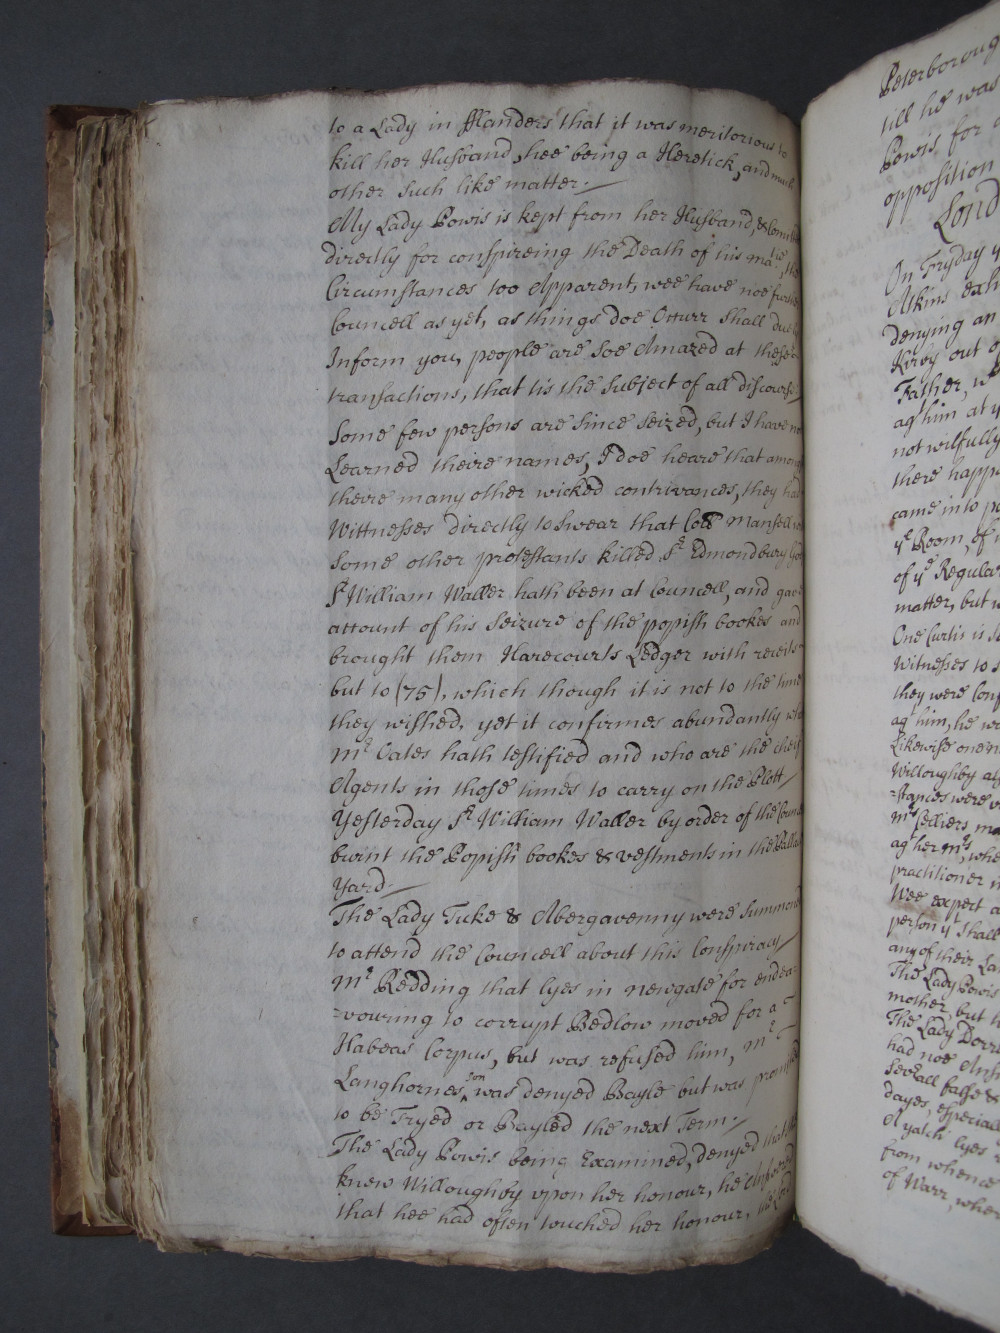 to a Lady in Fflanders that it was meritorious to
kill her Husband, hee being a Heretick, and much
other such like matter.
My Lady Powis is kept from her Husband, &
directly for conspireing the Death of his ma:tie, the
Circumstances too Apparent, wee have noe further
Councell as yet, as things doe Occurr shall duely
Inform you, people are soe Amazed at these
transactions, that tis the subject of all discourse,
Some few persons are since seized, but I have not
Learned theire names, I doe heare that among
theire many other wicked contrivances, they had
Wittnesses directly to swear that Coll Mansell
some other protestants killed Sr Edmondbury
Sr William Waller hath been at Councell, and gave
account of his seizure of the popish bookes and
brought them Harecourts Ledger with receits
but to (75), which though it is not to the time
they wished, yet it confirmes abundantly
Mr Oates hath testified and who are the cheif
Agents in those times to carry on the Plott
Yesterday Sr William Waller by order of the
burnt the Popish bookes & vestments in the
Yard.
The Lady Tuke & Abergavenny were summoned
to attend the Councell about this Conspiracy
Mr Redding that lyes in Newgate for endea-
=vouring to corrupt Bedlow moved for a
Habeas Corpus, but was refused him, Mr
Langhornes son was denyed Bayle but was promised
to be Tryed or Bayled the next Term.
The Lady Powis being Examined, denyed that
knew Willoughby upon her honour, he Answered
that hee had often touched her honour,
Peterboroug
till he was
Powis for
opposition
Lond
On Fryday
Atkins
denying an
Kirby out
Father,
agt him at
not wilfully
there happ
came into
ye Room, of
of ye Regular
matter, but
One Curtis is
Witnesses to
they were
agt him, he
Likewise one
Willoughby
=stances were
Mrs Celliers
agt her
practitioner
Wee expect
person yt shall
any of their
The Lady Powis
mother, but
The Lady
had noe
severall false &
dayes, especiall
A yatch lyes
from whence
of Warr,